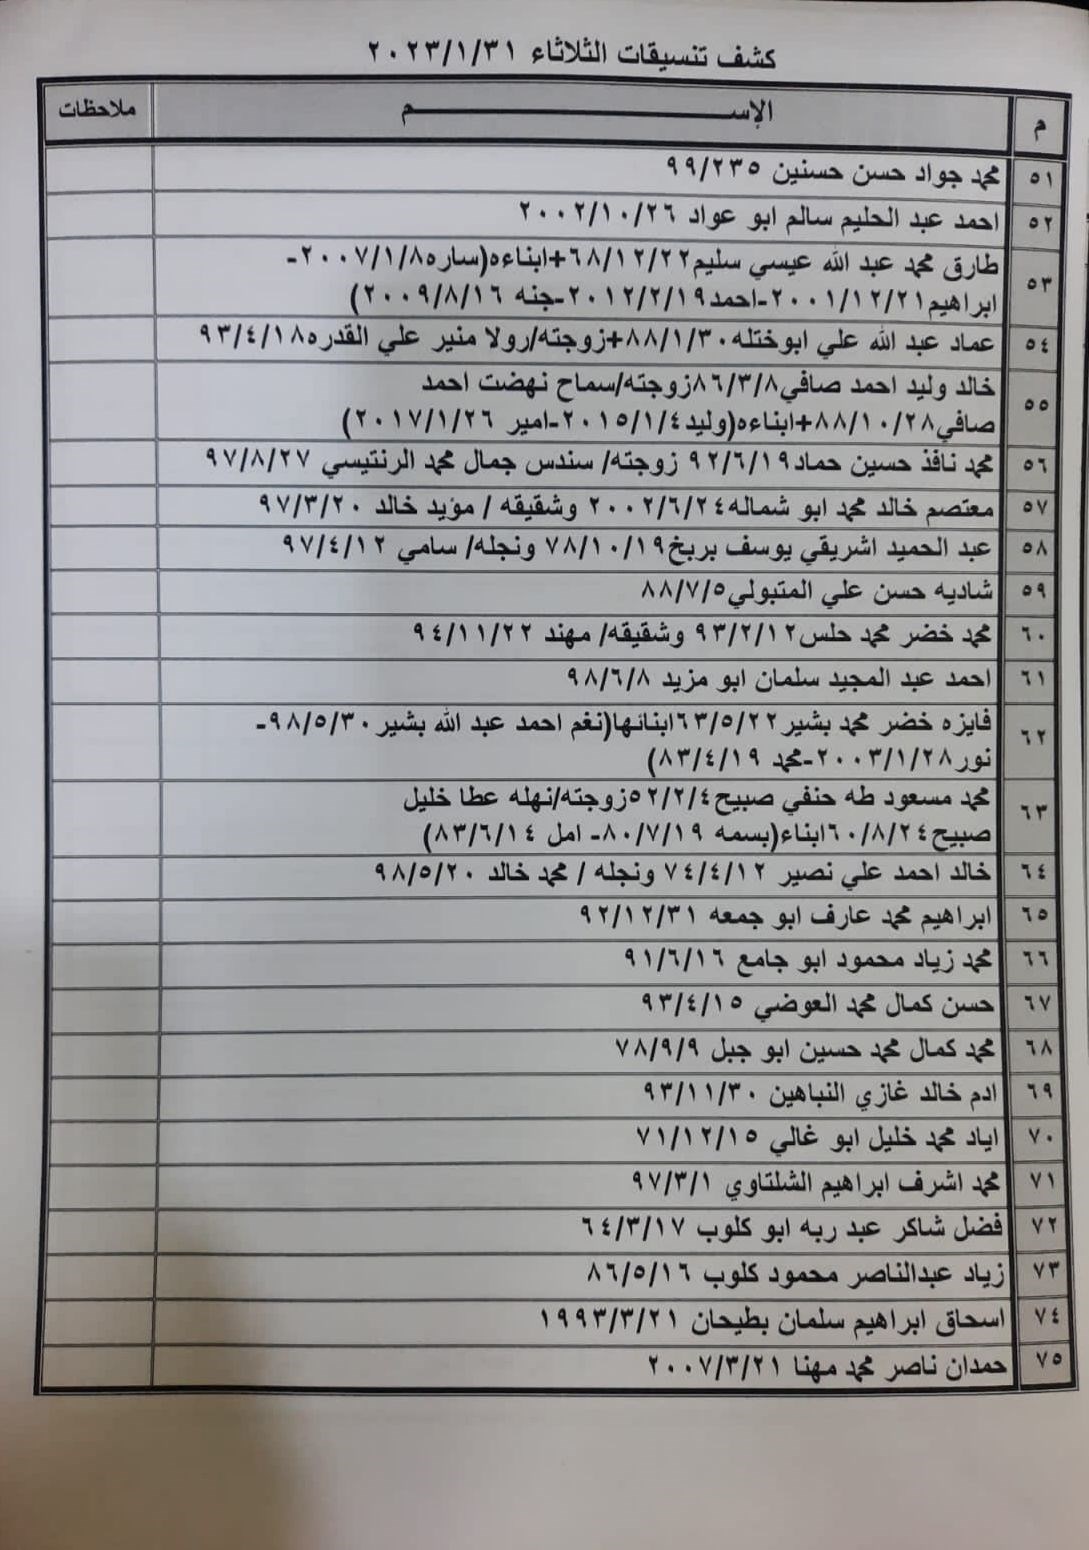 كشف تنسيقات الثلاثاء ٢٠٢٣/١/٣١
م الإســـــــــم ملاحظات
٥١ محمد جواد حسن حسنين ٩٩/٢٣٥
٥٢ احمد عبد الحليم سالم ابو عواد ٢٠٠٢/١٠/٢٦
٥٣ طارق محمد عبد الله عيسي سليم٦٨/١٢/٢٢+ابناءه(ساره٢٠٠٧/١/٨-
ابراهيم٢٠٠١/١٢/٢١-احمد٢٠١٢/٢/١٩-جنه ٢٠٠٩/٨/١٦)
٥٤ عماد عبد الله علي ابوختله٨٨/١/٣٠+زوجته/رولا منير علي القدره٩٣/٤/١٨
٥٥ خالد وليد احمد صافي٨٦/٣/٨زوجته/سماح نهضت احمد
صافي٨٨/١٠/٢٨+ابناءه(وليد٢٠١٥/١/٤-امير ٢٠١٧/١/٢٦)
٥٦ محمد نافذ حسين حماد٩٢/٦/١٩ زوجته/ سندس جمال محمد الرنتيسي ٩٧/٨/٢٧
٥٧ معتصم خالد محمد ابو شماله٢٠٠٢/٦/٢٤ وشقيقه / مؤيد خالد ٩٧/٣/٢٠
٥٨ عبد الحميد اشريقي يوسف بربخ٧٨/١٠/١٩ ونجله/ سامي ٩٧/٤/١٢
٥٩ شاديه حسن علي المتبولي٨٨/٧/٥
٦٠ محمد خضر محمد حلس٩٣/٢/١٢ وشقيقه/ مهند ٩٤/١١/٢٢
٦١ احمد عبد المجيد سلمان ابو مزيد ٩٨/٦/٨
٦٢ فايزه خضر محمد بشير٦٣/٥/٢٢ابنائها(نغم احمد عبد الله بشير٩٨/٥/٣٠-
نور٢٠٠٣/١/٢٨-محمد ٨٣/٤/١٩)
٦٣ محمد مسعود طه حنفي صبيح٥٢/٢/٤زوجته/نهله عطا خليل
صبيح٦٠/٨/٢٤ابناء(بسمه ٨٠/٧/١٩- امل ٨٣/٦/١٤)
٦٤ خالد احمد علي نصير ٧٤/٤/١٢ ونجله / محمد خالد ٩٨/٥/٢٠
٦٥ ابراهيم محمد عارف ابو جمعه ٩٢/١٢/٣١
٦٦ محمد زياد محمود ابو جامع ٩١/٦/١٦
٦٧ حسن كمال محمد العوضي ٩٣/٤/١٥
٦٨ محمد كمال محمد حسين ابو جبل ٧٨/٩/٩
٦٩ ادم خالد غازي النباهين ٩٣/١١/٣٠
٧٠ اياد محمد خليل ابو غالي ٧١/١٢/١٥
٧١ محمد اشرف ابراهيم الشلتاوي ٩٧/٣/١
٧٢ فضل شاكر عبد ربه ابو كلوب ٦٤/٣/١٧
٧٣ زياد عبدالناصر محمود كلوب ٨٦/٥/١٦
٧٤ اسحاق ابراهيم سلمان بطيحان ١٩٩٣/٣/٢١
٧٥ حمدان ناصر محمد مهنا ٢٠٠٧/٣/٢١